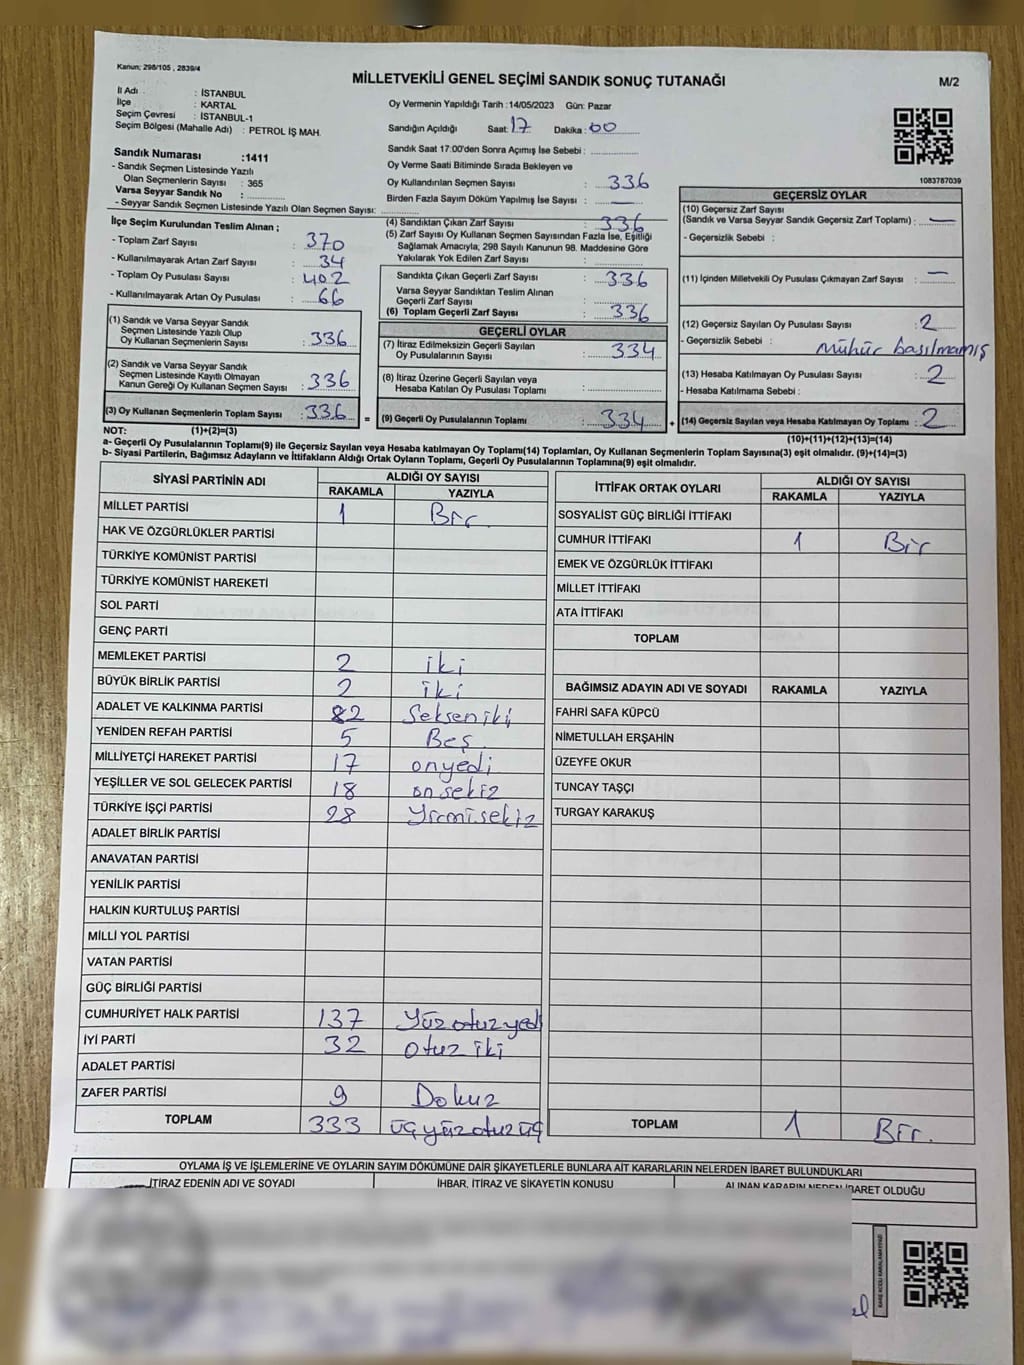 Kanun: 298/105 , 2839/4
MİLLETVEKİLİ GENEL SEÇİMİ SANDIK SONUÇ TUTANAĞI
M/2
İl Adı : İSTANBUL
İlçe : KARTAL
Seçim Çevresi : İSTANBUL-1
Seçim Bölgesi (Mahalle Adı) : PETROL İŞ MAH.
Oy Vermenin Yapıldığı Tarih :14/05/2023 Gün: Pazar
Sandığın Açıldığı Saat: 17 Dakika: 00
Sandık Saat 17:00'den Sonra Açılmış İse Sebebi :
Oy Verme Saati Bitiminde Sırada Bekleyen ve
Oy Kullandırılan Seçmen Sayısı : 336
Birden Fazla Sayım Döküm Yapılmış İse Sayısı : —
Sandık Numarası :1411
- Sandık Seçmen Listesinde Yazılı
Olan Seçmenlerin Sayısı : 365
Varsa Seyyar Sandık No :
- Seyyar Sandık Seçmen Listesinde Yazılı Olan Seçmen Sayısı:
İlçe Seçim Kurulundan Teslim Alınan ;
- Toplam Zarf Sayısı : 370
- Kullanılmayarak Artan Zarf Sayısı : 34
- Toplam Oy Pusulası Sayısı : 402
- Kullanılmayarak Artan Oy Pusulası : 66
(1) Sandık ve Varsa Seyyar Sandık
Seçmen Listesinde Yazılı Olup
Oy Kullanan Seçmenlerin Sayısı : 336
(2) Sandık ve Varsa Seyyar Sandık
Seçmen Listesinde Kayıtlı Olmayan
Kanun Gereği Oy Kullanan Seçmen Sayısı : 336
(3) Oy Kullanan Seçmenlerin Toplam Sayısı : 336
(4) Sandıktan Çıkan Zarf Sayısı : 336
(5) Zarf Sayısı Oy Kullanan Seçmen Sayısından Fazla İse, Eşitliği
Sağlamak Amacıyla, 298 Sayılı Kanunun 98. Maddesine Göre
Yakılarak Yok Edilen Zarf Sayısı :
Sandıkta Çıkan Geçerli Zarf Sayısı : 336
Varsa Seyyar Sandıktan Teslim Alınan
Geçerli Zarf Sayısı :
(6) Toplam Geçerli Zarf Sayısı : 336
GEÇERLİ OYLAR
(7) İtiraz Edilmeksizin Geçerli Sayılan
Oy Pusulalarının Sayısı : 334
(8) İtiraz Üzerine Geçerli Sayılan veya
Hesaba Katılan Oy Pusulalarının Toplamı :
= (9) Geçerli Oy Pusulalarının Toplamı : 334 +
1083787039
GEÇERSİZ OYLAR
(10) Geçersiz Zarf Sayısı
(Sandık ve Varsa Seyyar Sandık Geçersiz Zarf Toplamı) : —
- Geçersizlik Sebebi :
(11) İçinden Milletvekili Oy Pusulası Çıkmayan Zarf Sayısı : —
(12) Geçersiz Sayılan Oy Pusulası Sayısı : 2
- Geçersizlik Sebebi : Mühür basılmamış
(13) Hesaba Katılmayan Oy Pusulası Sayısı : 2
- Hesaba Katılmama Sebebi :
(14) Geçersiz Sayılan veya Hesaba Katılmayan Oy Toplamı : 2
NOT: (1)+(2)=(3)
(10)+(11)+(12)+(13)=(14)
a- Geçerli Oy Pusulalarının Toplamı(9) ile Geçersiz Sayılan veya Hesaba katılmayan Oy Toplamı(14) Toplamları, Oy Kullanan Seçmenlerin Toplam Sayısına(3) eşit olmalıdır. (9)+(14)=(3)
b- Siyasi Partilerin, Bağımsız Adayların ve İttifakların Aldığı Ortak Oyların Toplamı, Geçerli Oy Pusulalarının Toplamına(9) eşit olmalıdır.
SİYASİ PARTİNİN ADI ALDIĞI OY SAYISI
RAKAMLA YAZIYLA
MİLLET PARTİSİ 1 Bir.
HAK VE ÖZGÜRLÜKLER PARTİSİ
TÜRKİYE KOMÜNİST PARTİSİ
TÜRKİYE KOMÜNİST HAREKETİ
SOL PARTİ
GENÇ PARTİ
MEMLEKET PARTİSİ 2 iki
BÜYÜK BİRLİK PARTİSİ 2 iki
ADALET VE KALKINMA PARTİSİ 82 Seksen iki
YENİDEN REFAH PARTİSİ 5 Beş.
MİLLİYETÇİ HAREKET PARTİSİ 17 onyedi
YEŞİLLER VE SOL GELECEK PARTİSİ 18 onsekiz
TÜRKİYE İŞÇİ PARTİSİ 28 Yirmisekiz
ADALET BİRLİK PARTİSİ
ANAVATAN PARTİSİ
YENİLİK PARTİSİ
HALKIN KURTULUŞ PARTİSİ
MİLLİ YOL PARTİSİ
VATAN PARTİSİ
GÜÇ BİRLİĞİ PARTİSİ
CUMHURİYET HALK PARTİSİ 137 Yüzotuzyedi
İYİ PARTİ 32 otuz iki
ADALET PARTİSİ
ZAFER PARTİSİ 9 Dokuz
TOPLAM 333 üçyüzotuzüç
İTTİFAK ORTAK OYLARI ALDIĞI OY SAYISI
RAKAMLA YAZIYLA
SOSYALİST GÜÇ BİRLİĞİ İTTİFAKI
CUMHUR İTTİFAKI 1 Bir
EMEK VE ÖZGÜRLÜK İTTİFAKI
MİLLET İTTİFAKI
ATA İTTİFAKI
TOPLAM
BAĞIMSIZ ADAYIN ADI VE SOYADI RAKAMLA YAZIYLA
FAHRİ SAFA KÜPCÜ
NİMETULLAH ERŞAHİN
ÜZEYFE OKUR
TUNCAY TAŞÇI
TURGAY KARAKUŞ
TOPLAM 1 Bir.
OYLAMA İŞ VE İŞLEMLERİNE VE OYLARIN SAYIM DÖKÜMÜNE DAİR ŞİKAYETLERLE BUNLARA AİT KARARLARIN NELERDEN İBARET BULUNDUKLARI
İTİRAZ EDENİN ADI VE SOYADI İHBAR, İTİRAZ VE ŞİKAYETİN KONUSU ALINAN KARARIN NEDEN İBARET OLDUĞU